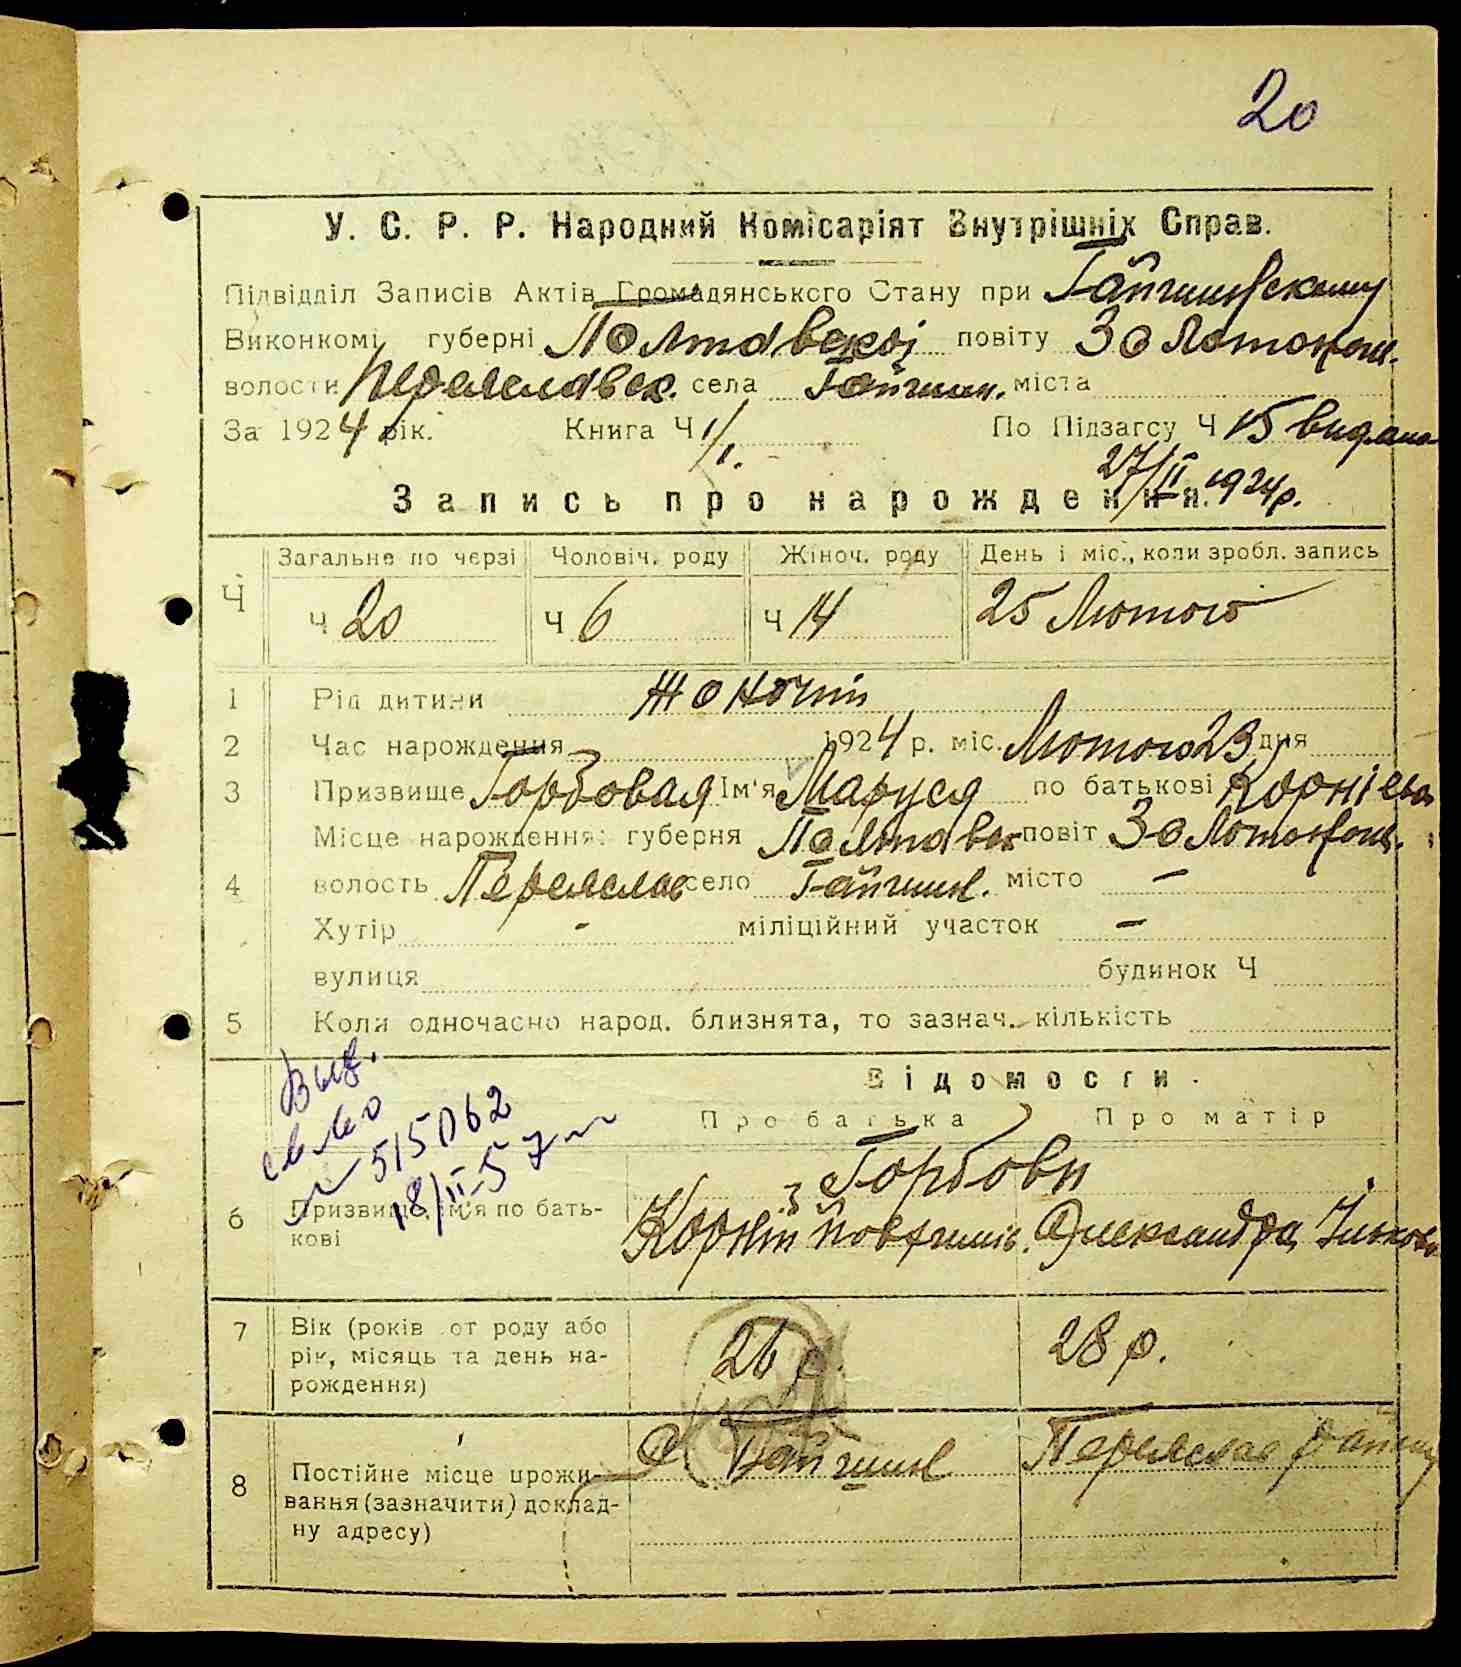 20
У. С. Р. Р. Народний Комісаріят Внутрішніх Справ.
Підвідділ Записів Актів Громадянського Стану при Гайшинскому
Виконкомі губерні Полтавскої повіту Золотонош.
волости Переяславск. села Гайшин. міста
За 1924 рік. Книга Ч 1/1. По Підзагсу Ч 15 видана
27/II 1924 р.
Запись про нарождення.
Ч Загальне по черзі Чоловіч. роду Жіноч. роду День і міс., коли зробл. запись
Ч 20 Ч 6 Ч 14 25 Лютого
1 Рід дитини Жоночій
2 Час нарождення 1924 р. міс. Лютого 23 дня
3 Призвище Горбовая Ім'я Маруся по батькові
Місце нарождення: губерня Полтавск повіт Золотонош.
4 волость Переяслав село Гайшин. місто —
Хутір - міліційний участок —
вулиця будинок Ч
5 Коли одночасно народ. близнята, то зазнач. кількість
Відомости.
Про батька Про матір
Выд.
св-во
515062
18/II-57
Горбови
6 Призвище, ім'я по батькові
Корній Александра
7 Вік (років от роду або рік, місяць та день нарождення)
26 р. 28 р.
8 Постійне місце проживання (зазначити) докладну адресу)
Гайшин Переяслав